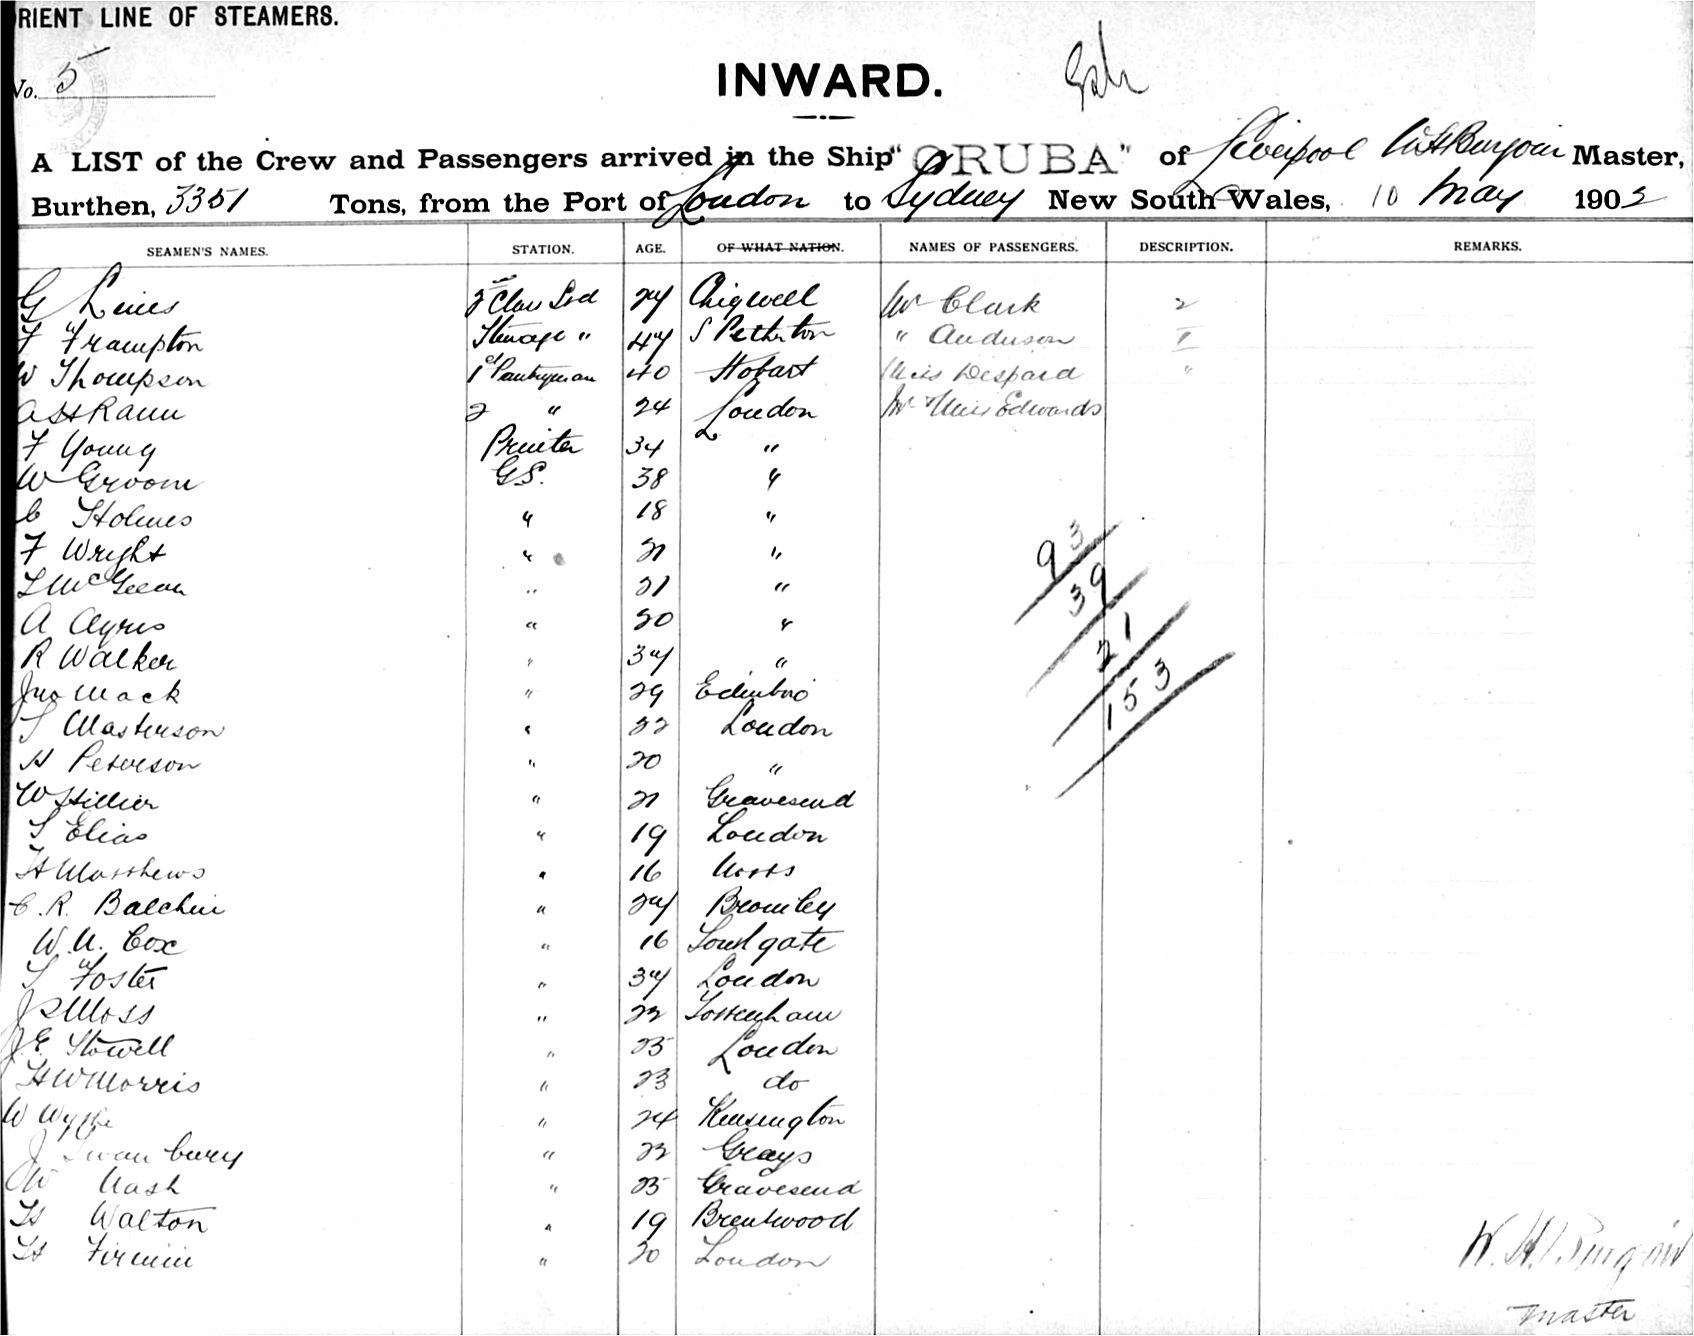 RIENT LINE OF STEAMERS.
No. 5
INWARD.
A LIST of the Crew and Passengers arrived in the Ship "ORUBA" of Liverpool Master,
Burthen, 3351 Tons, from the Port of London to Sydney New South Wales, 10 May 1902
SEAMEN'S NAMES. STATION. AGE. OF WHAT NATION. NAMES OF PASSENGERS. DESCRIPTION. REMARKS.
G Lines 24 Chigwell Mr Clark 2
F Frampton Steerage " 47 S Petherton " Anderson II
W Thompson 1st Pantryman 40 Hobart Miss Despard "
A H Rann 2 " 24 London Mr & Miss Edwards
F Young Printer 34 "
W Groom G.S. 38 "
C Holmes " 18 "
F Wright " 21 "
McGeean " 21 "
A Ayres " 20 "
R Walker " 34 "
Jno Mack " 29 Edinbro
S Masterson " 22 London
H Peterson " 20 "
W Hillier " 21 Gravesend
S Elias " 19 London
H Matthews " 16 Notts
C. R. Balchin " 24 Bromley
W. A. Cox " 16 Southgate
S Foster " 34 London
J S Moss " 22 Tottenham
J E Stowell " 25 London
H W Morris " 23 do
W Wythe " 24 Kensington
J Swanbury " 22 Grays
W Nash " 25 Gravesend
H Walton " 19 Brentwood
H Firmin " 20 London
93
39
21
153
W. H.
Master